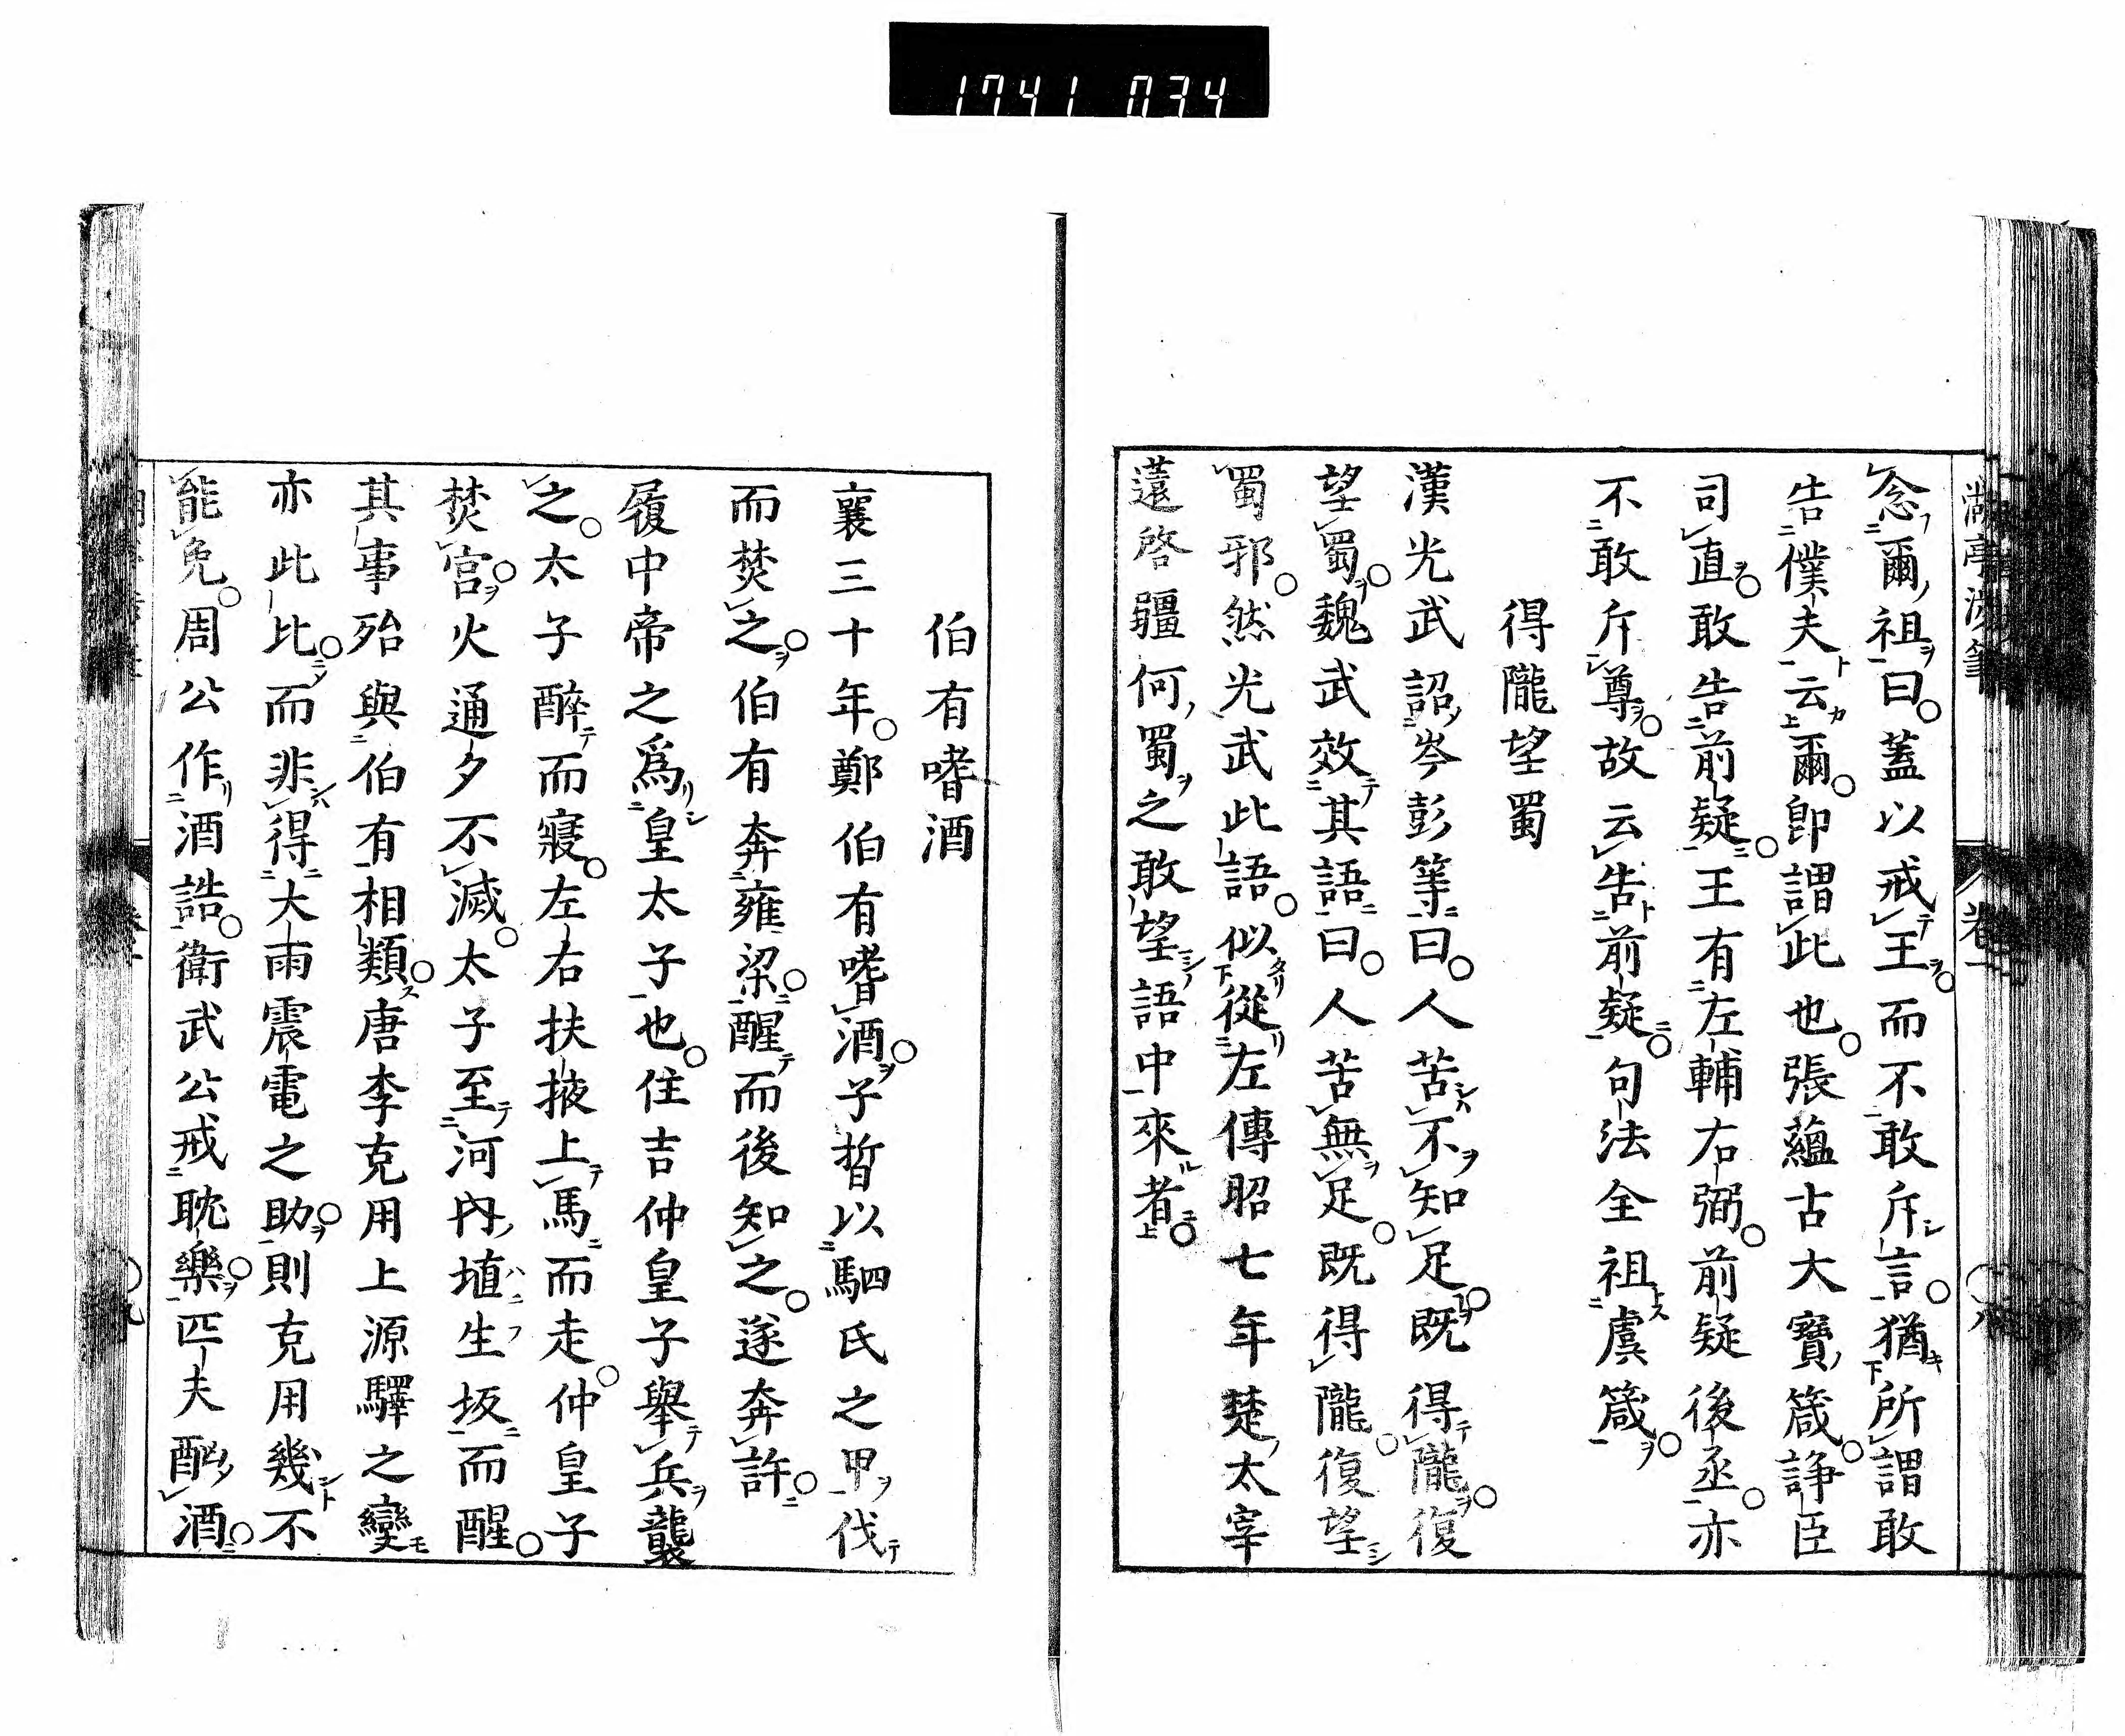 1741 034
念爾祖曰蓋以戒王而不敢斥言猶所謂敢
告僕夫云爾卽謂此也張蘊古大寶箴諍臣
司直敢告前疑王有左輔右弼前疑後丞亦
不敢斥尊故云告前疑句法全祖虞箴
得隴望蜀
漢光武詔岑彭等曰人苦不知足既得隴復
望蜀魏武效其語曰人苦無足既得隴復望
蜀邪然光武此語似從左傳昭七年楚太宰
薳啓疆何蜀之敢望語中來者
伯有嗜酒
襄三十年鄭伯有嗜酒子晳以駟氏之甲伐
而焚之伯有奔雍梁醒而後知之遂奔許
履中帝之爲皇太子也住吉仲皇子舉兵襲
之太子醉而寢左右扶掖上馬而走仲皇子
焚宮火通夕不滅太子至河內埴生坂而醒
其事殆與伯有相類唐李克用上源驛之變
亦此比而非得大雨震電之助則克用幾不
能免周公作酒誥衛武公戒耽樂匹夫酗酒